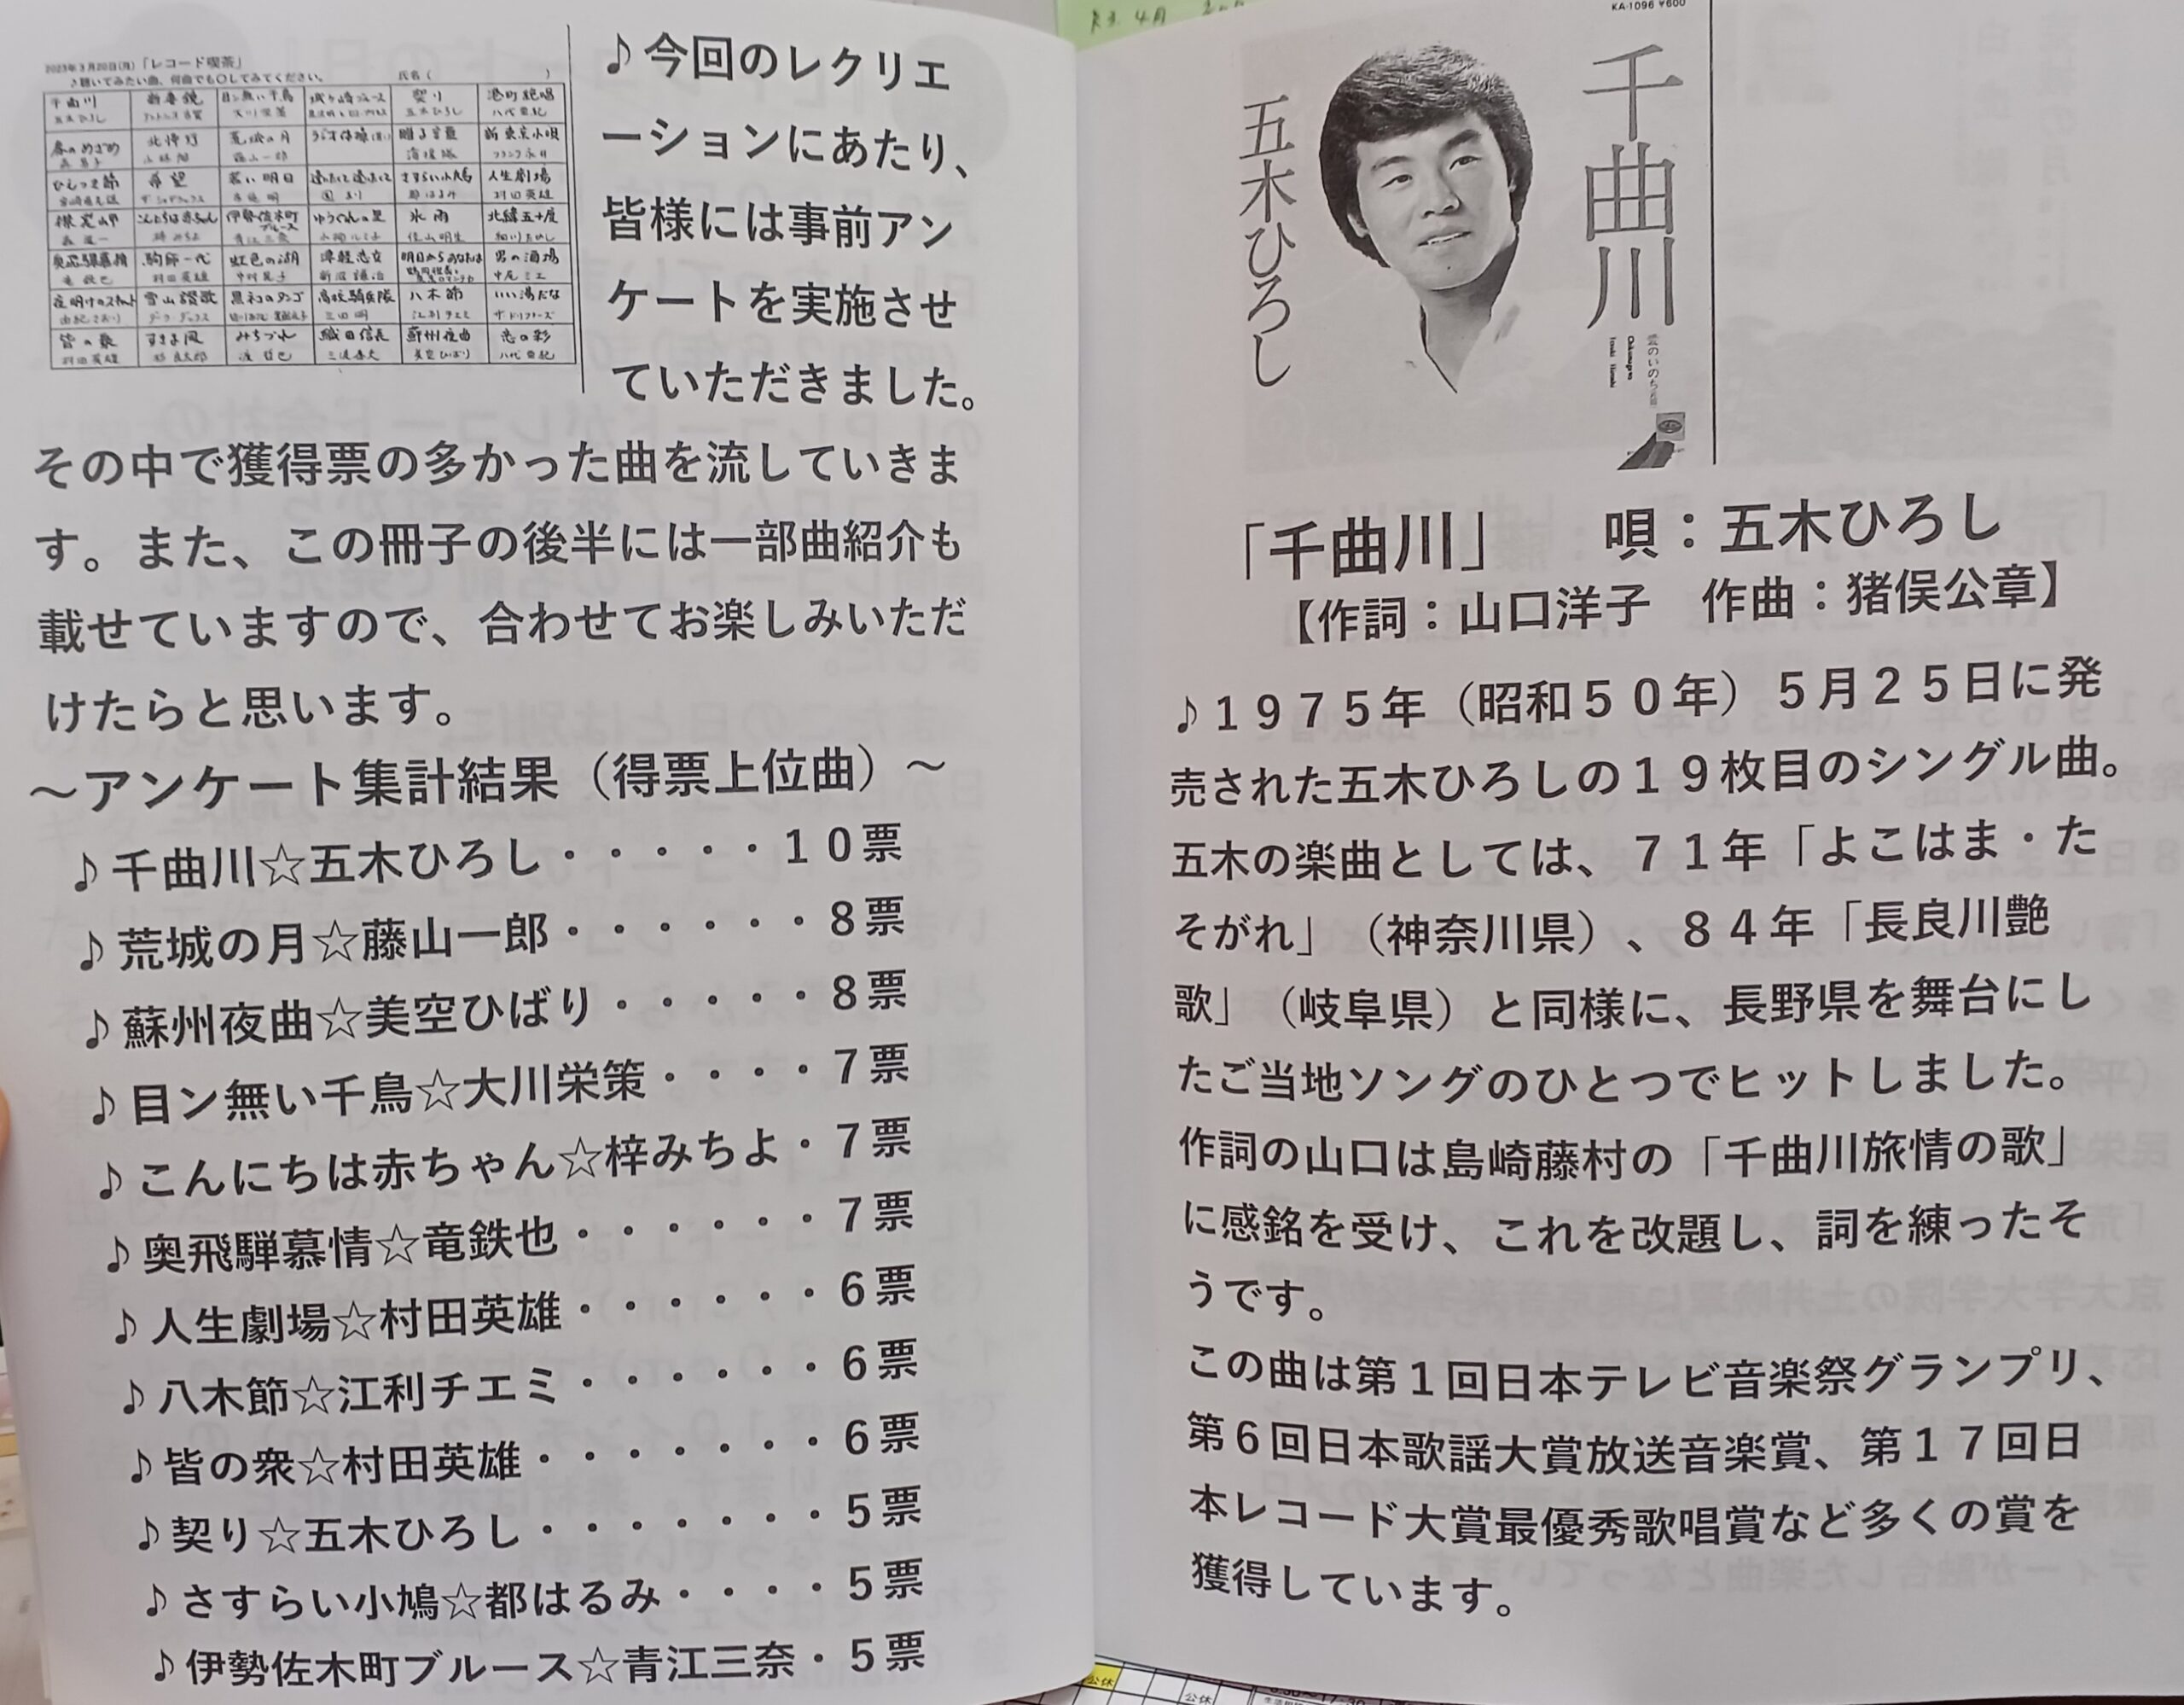 2023年3月20日(月)「レコード喫茶」
♪聴いてみたい曲、何曲でも〇してみてください。 氏名（ ）
千曲川 五木ひろし
目ン無い千鳥 大川栄策
契り 五木ひろし
港町絶唱 八代亜紀
北帰行 小林旭
荒城の月 藤山一郎
新東京小唄 フランク永井
ひえつき節
希望
さすらい小鳩 都はるみ
人生劇場 村田英雄
襟裳岬 森進一
こんにちは赤ちゃん 梓みちよ
伊勢佐木町ブルース 青江三奈
氷雨 佳山明生
北緯五十度 細川たかし
奥飛騨慕情 竜鉄也
虹色の湖 中村晃子
津軽恋女 新沼謙治
男の酒場 中尾ミエ
夜明けのスキャット 由紀さおり
雪山讃歌 ダークダックス
黒ネコのタンゴ
高校騎兵隊 三田明
八木節 江利チエミ
いい湯だな ザ・ドリフターズ
皆の衆 村田英雄
すきま風 杉良太郎
みちづれ 渡哲也
織田信長 三波春夫
蘇州夜曲 美空ひばり
恋の彩 八代亜紀
♪今回のレクリエ
ーションにあたり、
皆様には事前アン
ケートを実施させ
ていただきました。
その中で獲得票の多かった曲を流していきま
す。また、この冊子の後半には一部曲紹介も
載せていますので、合わせてお楽しみいただ
けたらと思います。
～アンケート集計結果（得票上位曲）～
♪千曲川☆五木ひろし・・・・・１０票
♪荒城の月☆藤山一郎・・・・・・８票
♪蘇州夜曲☆美空ひばり・・・・・８票
♪目ン無い千鳥☆大川栄策・・・・７票
♪こんにちは赤ちゃん☆梓みちよ・７票
♪奥飛騨慕情☆竜鉄也・・・・・・７票
♪人生劇場☆村田英雄・・・・・・６票
♪八木節☆江利チエミ・・・・・・６票
♪皆の衆☆村田英雄・・・・・・・６票
♪契り☆五木ひろし・・・・・・・５票
♪さすらい小鳩☆都はるみ・・・・５票
♪伊勢佐木町ブルース☆青江三奈・５票
KA-1096 ¥600
千曲川
五木ひろし
「千曲川」　唄：五木ひろし
【作詞：山口洋子　作曲：猪俣公章】
♪１９７５年（昭和５０年）５月２５日に発
売された五木ひろしの１９枚目のシングル曲。
五木の楽曲としては、７１年「よこはま・た
そがれ」（神奈川県）、８４年「長良川艶
歌」（岐阜県）と同様に、長野県を舞台にし
たご当地ソングのひとつでヒットしました。
作詞の山口は島崎藤村の「千曲川旅情の歌」
に感銘を受け、これを改題し、詞を練ったそ
うです。
この曲は第１回日本テレビ音楽祭グランプリ、
第６回日本歌謡大賞放送音楽賞、第１７回日
本レコード大賞最優秀歌唱賞など多くの賞を
獲得しています。
公休
公休